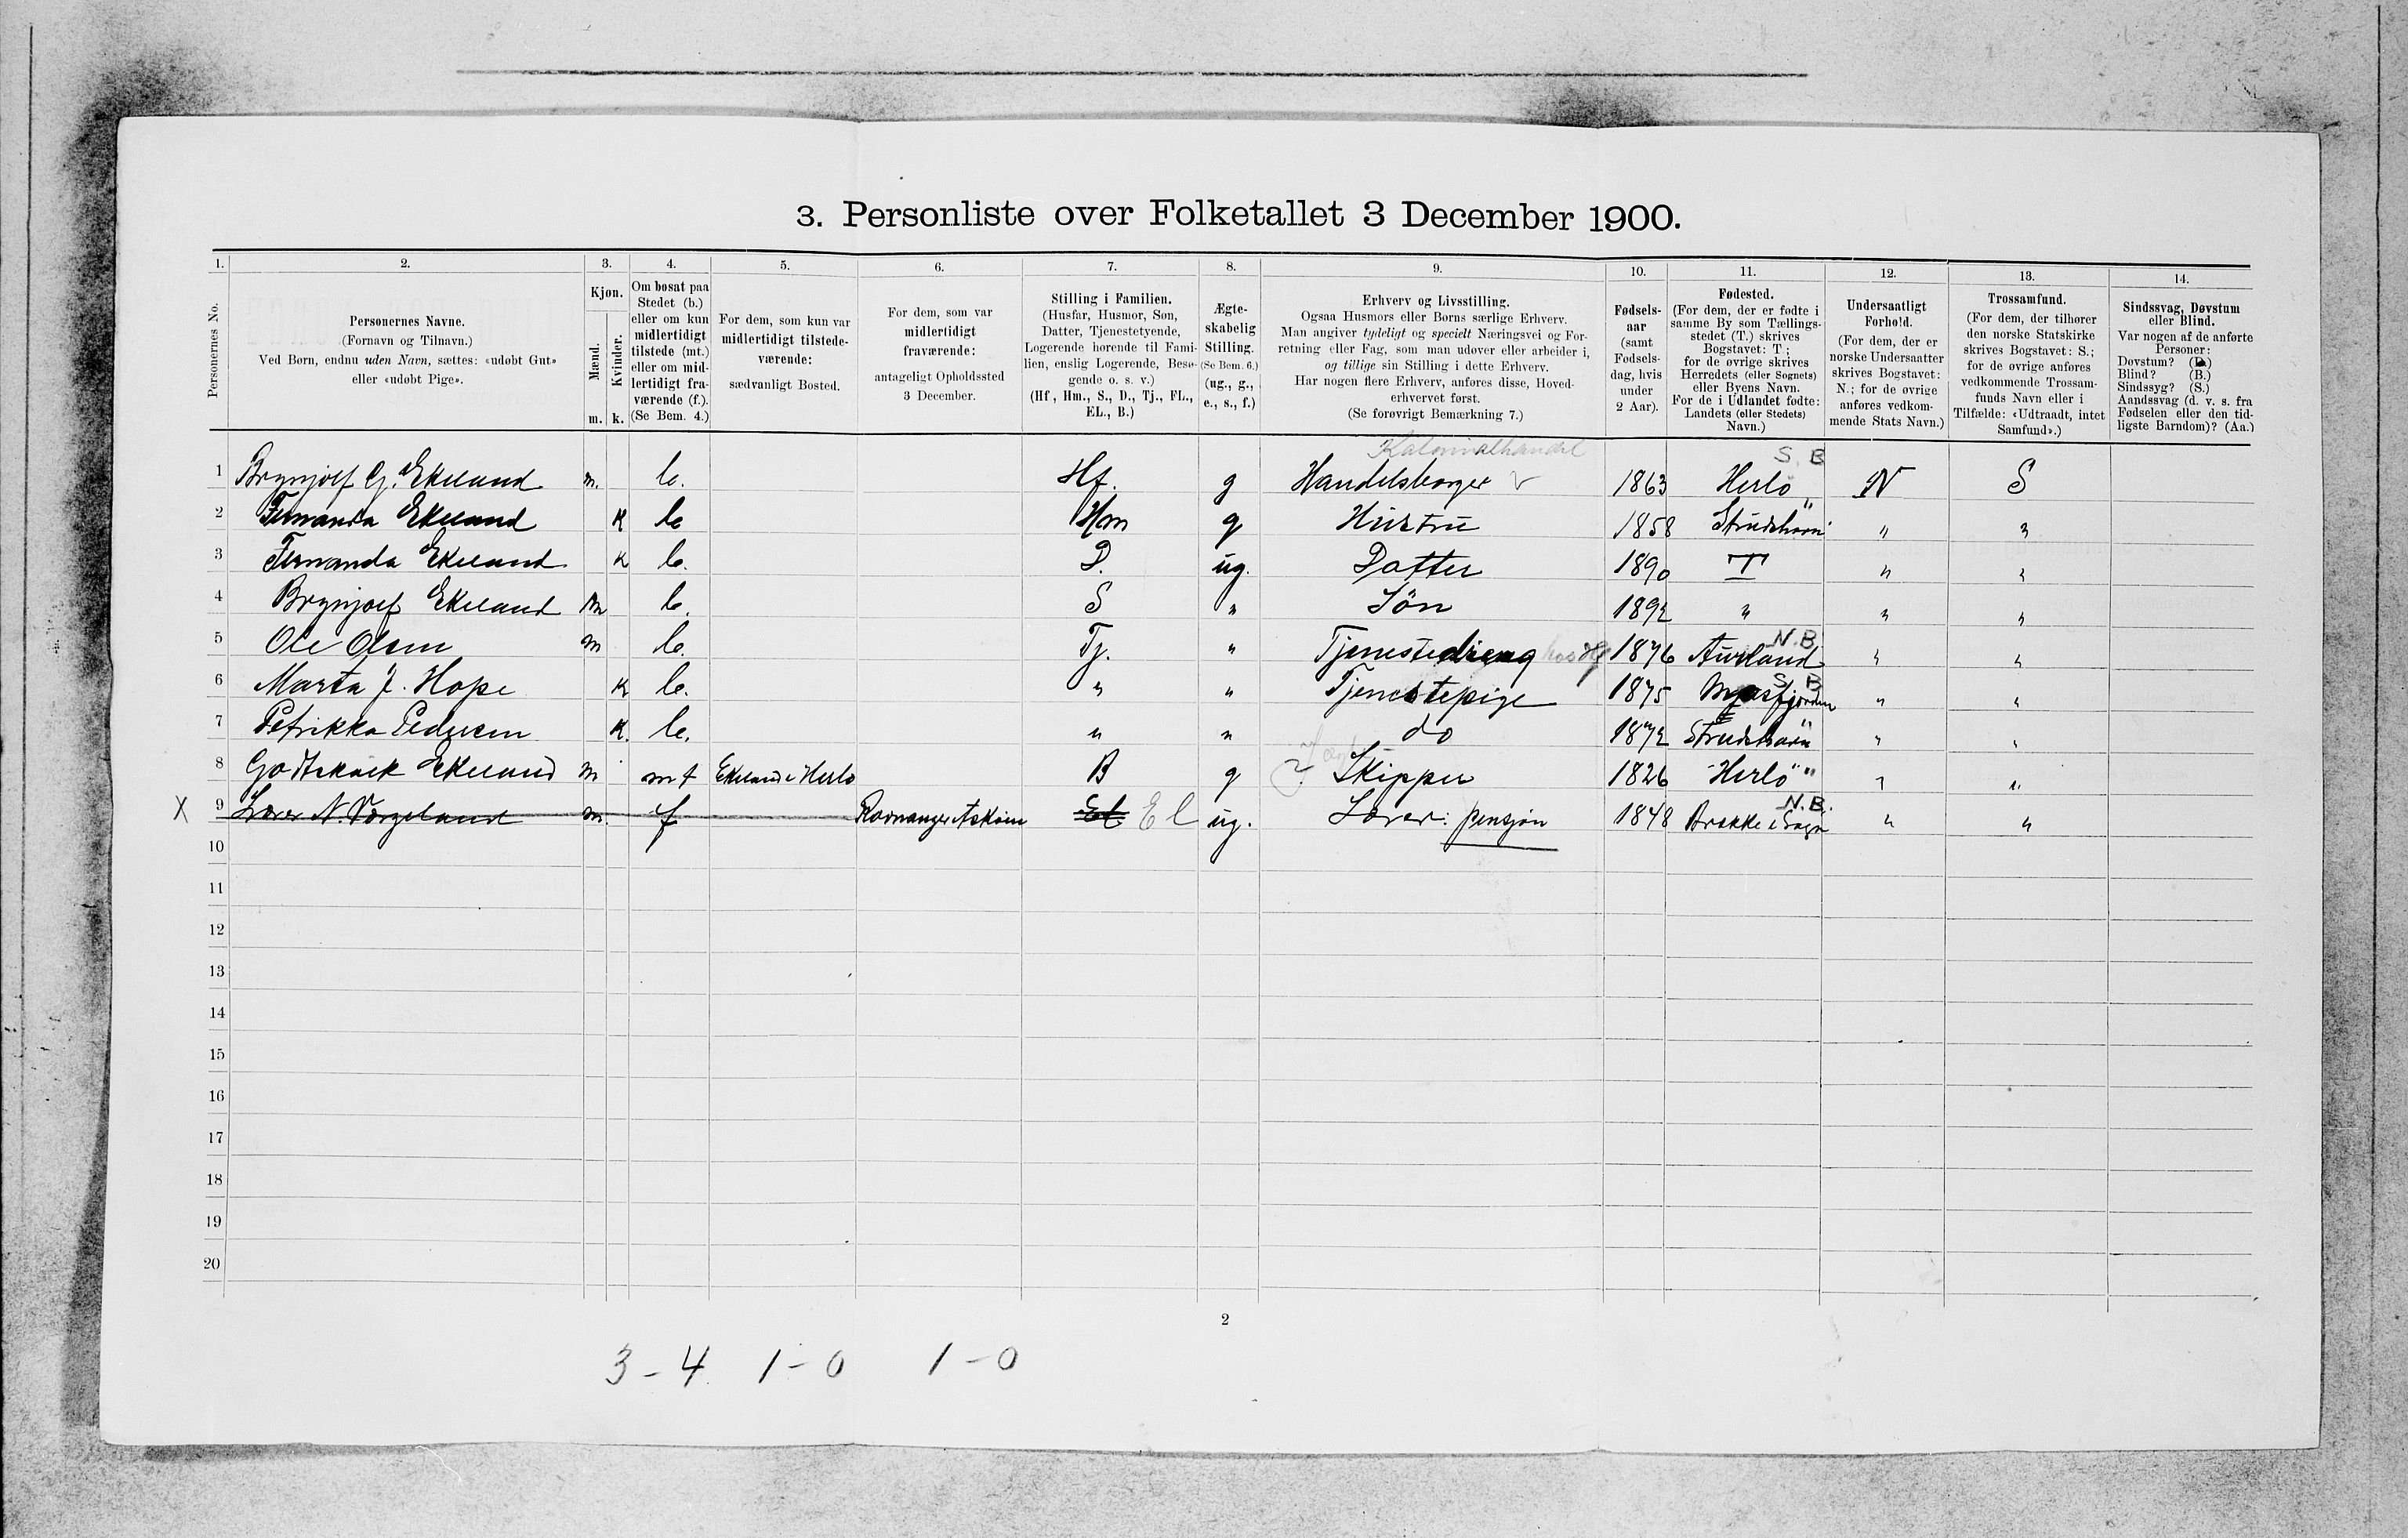 3. Personliste over Folketallet 3 December 1900.
1. 2. 3. 4. 5. 6. 7. 8. 9. 10. 11. 12. 13. 14.
Personernes No.
Personernes Navne.
(Fornavn og Tilnavn.)
Ved Børn, endnu uden Navn, sættes: «udøbt Gut»
eller «udøbt Pige».
Kjøn.
Mænd.
Kvinder.
m. k.
Om bosat paa
Stedet (b.)
eller om kun
midlertidigt
tilstede (mt.)
eller om mid-
lertidigt fra-
værende (f.).
(Se Bem. 4.)
For dem, som kun var
midlertidigt tilstede-
værende:
sædvanligt Bosted.
For dem, som var
midlertidigt
fraværende:
antageligt Opholdssted
3 December.
Stilling i Familien.
(Husfar, Husmor, Søn,
Datter, Tjenestetyende,
Logerende hørende til Fami-
lien, enslig Logerende, Besø-
gende o. s. v.)
(Hf., Hm., S., D., Tj., FL.,
EL., B.)
Ægte-
skabelig
Stilling.
(Se Bem. 6.)
(ug., g.,
e., s., f.)
Erhverv og Livsstilling.
Ogsaa Husmors eller Børns særlige Erhverv.
Man angiver tydeligt og specielt Næringsvei og For-
retning eller Fag, som man udøver eller arbeider i,
og tillige sin Stilling i dette Erhverv.
Har nogen flere Erhverv, anføres disse, Hoved-
erhvervet først.
(Se forøvrigt Bemærkning 7.)
Fødsels-
aar
(samt
Fødsels-
dag, hvis
under
2 Aar).
Fødested.
(For dem, der er fødte i
samme By som Tællings-
stedet (T.) skrives
Bogstavet: T;
for de øvrige skrives
Herredets (eller Sognets)
eller Byens Navn.
For de i Udlandet fødte:
Landets (eller Stedets)
Navn.)
Undersaatligt
Forhold.
(For dem, der er
norske Undersaatter
skrives Bogstavet:
N.; for de øvrige
anføres vedkom-
mende Stats Navn.)
Trossamfund.
(For dem, der tilhører
den norske Statskirke
skrives Bogstavet: S.;
for de øvrige anføres
vedkommende Trossam-
funds Navn eller i
Tilfælde: «Udtraadt, intet
Samfund».)
Sindssvag, Døvstum
eller Blind.
Var nogen af de anførte
Personer:
Døvstum? (D.)
Blind? (B.)
Sindssyg? (S.)
Aandssvag (d. v. s. fra
Fødselen eller den tid-
ligste Barndom)? (Aa.)
Kolonialhandel S. B
1 Brynjolf G. Ekeland m. b. Hf. g Handelsborger 1863 Herlø N S
2 Fernanda Ekeland K b Hm g Hustru 1858 Strudshavn " "
3 Fernanda Ekeland K b. D. ug. Datter 1890 T " "
4 Brynjolf Ekeland m b. S " Søn 1892 " " "
N. B
5 Ole Olsen m b. Tj. " Tjenestedreng hos Hf 1876 Aurland " "
S. B
6 Marta J. Hope K b. " " Tjenestepige 1875 " "
7 Petrikka Pedersen K. b. " " do 1872 Strudshavn " "
8 Godtskalk Ekeland m mt Ekeland i Herlø B g ? Skipper 1826 Herlø " " "
N. B.
X 9 Lærer N. m. f Ravnanger Askøen EL El ug. Lærer: pensjon 1848 Brekke i Sogn " "
10
11
12
13
14
15
16
17
18
19
20
2
3 - 4 1 - 0 1 - 0